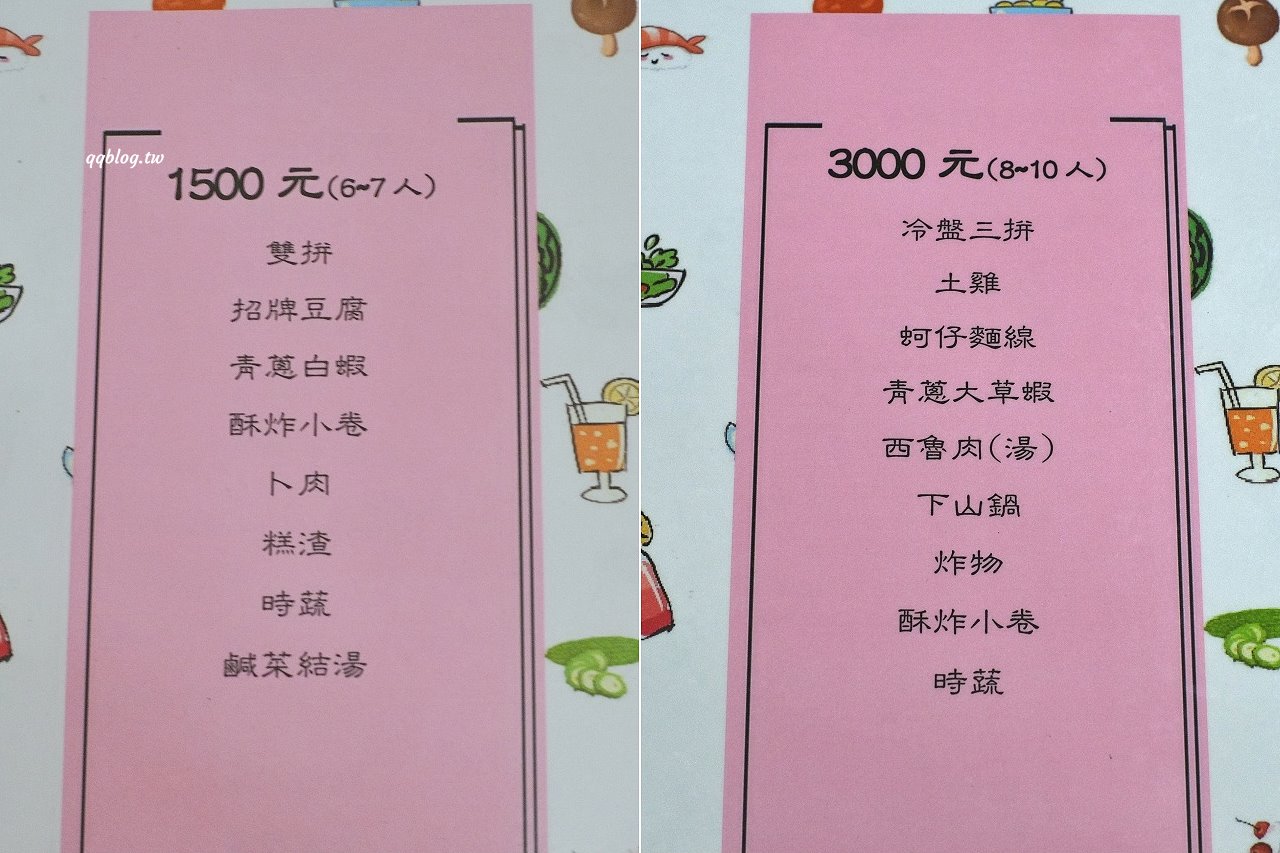 qqblog.tw
1500 元(6~7 人)
雙拼
招牌豆腐
青蔥白蝦
酥炸小卷
卜肉
糕渣
時蔬
鹹菜結湯
3000 元(8~10 人)
冷盤三拼
土雞
蚵仔麵線
青蔥大草蝦
西魯肉(湯)
下山鍋
炸物
酥炸小卷
時蔬